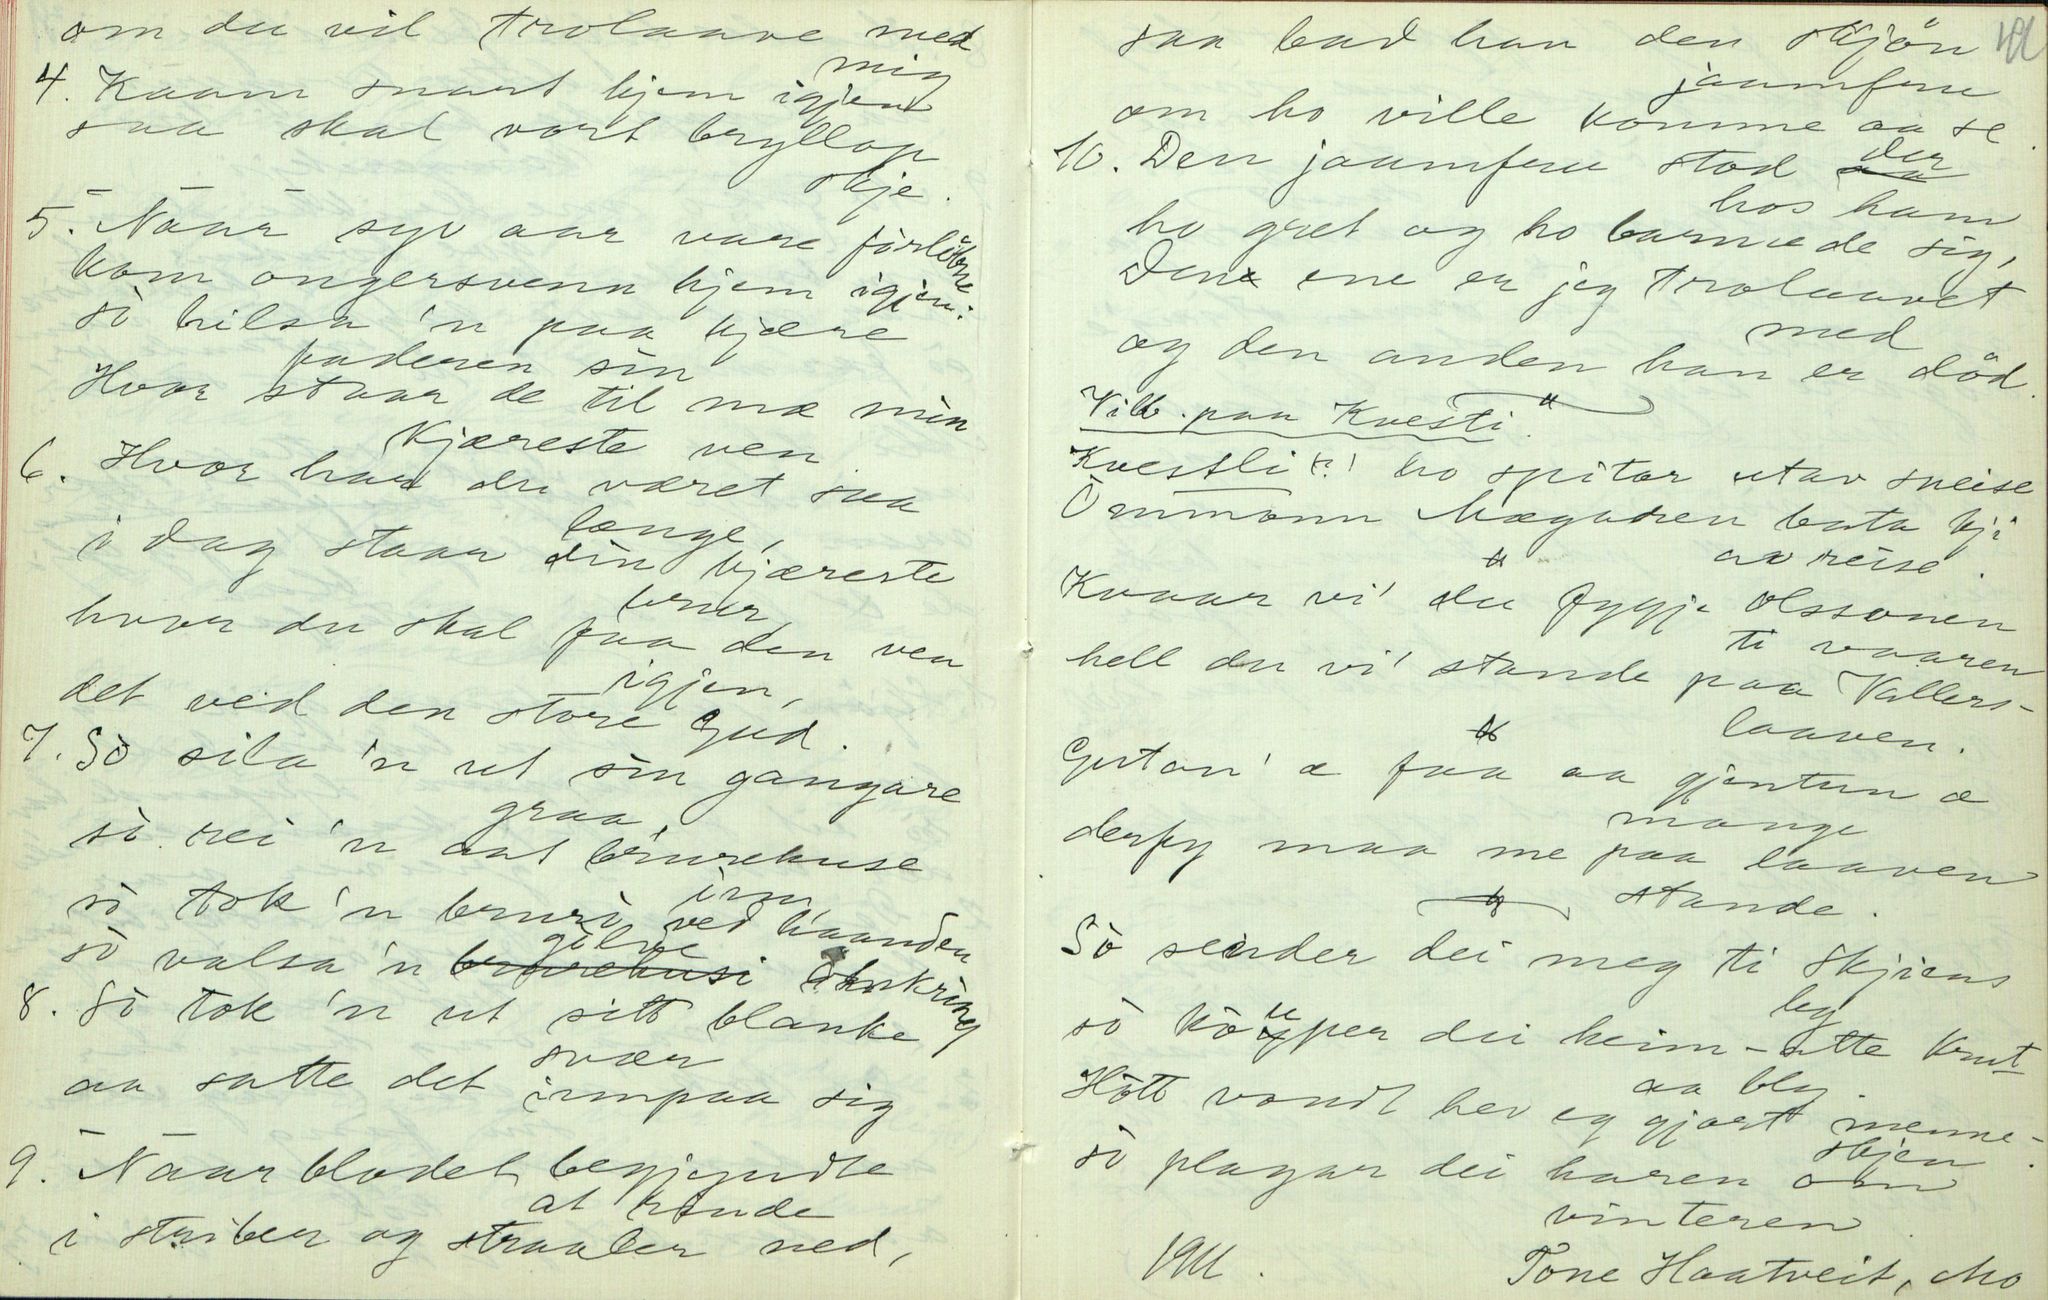 om du vil trolaave med
mig
4. Kaam snart hjem igjen
saa skal vort bryllop
skje.
5. Naar syv aar vare forløbne
kom ongersvenn hjem igjen:
so hilsa 'n paa kjære
faderen sin
Hvor staar de til mæ min
kjæreste ven
6. Hvor har du været saa
længe,
i dag staar din kjæreste
brur,
hvor du skal faa den ven
igjen,
det ved den store Gud.
7. So sila 'n ut sin gangare
graa
so rei 'n aat brurehuse
inn
so tok 'n bruri ved haanden
so valsa 'n gilde omkring
8. So tok 'n ut sitt blanke
svær
aa satte det innpaa sig
9. Naar blodet begjyndte
at rinde
i striber og straaler ned,
saa bad han den skjøn
jaamfru
om ho ville komme aa se.
10. Den jaamfru stod der
hos ham
ho gret og ho barmede sig,
Den ene er jeg trolaavet
med
og den anden han er död.
Vilb. paa Kvesti.
Kvestli (?) ho spitar utav sneise
Ommonn Mægadren bata kji
av reise.
Kvaar vi' du fygje Olssonen
ti vaaren
hell du vi' stande paa Vallers-
laaven.
Gutan' æ faa aa gjentun æ
mange
derfy maa me paa laaven
stande.
So sender dei meg ti Skjiens
by
so köuper dei heim-atte krut
aa bly.
Hött vondt hev eg gjort menne-
skjen.
so plagar dei haren om
vinteren
1911. Tone Haatveit, Mo